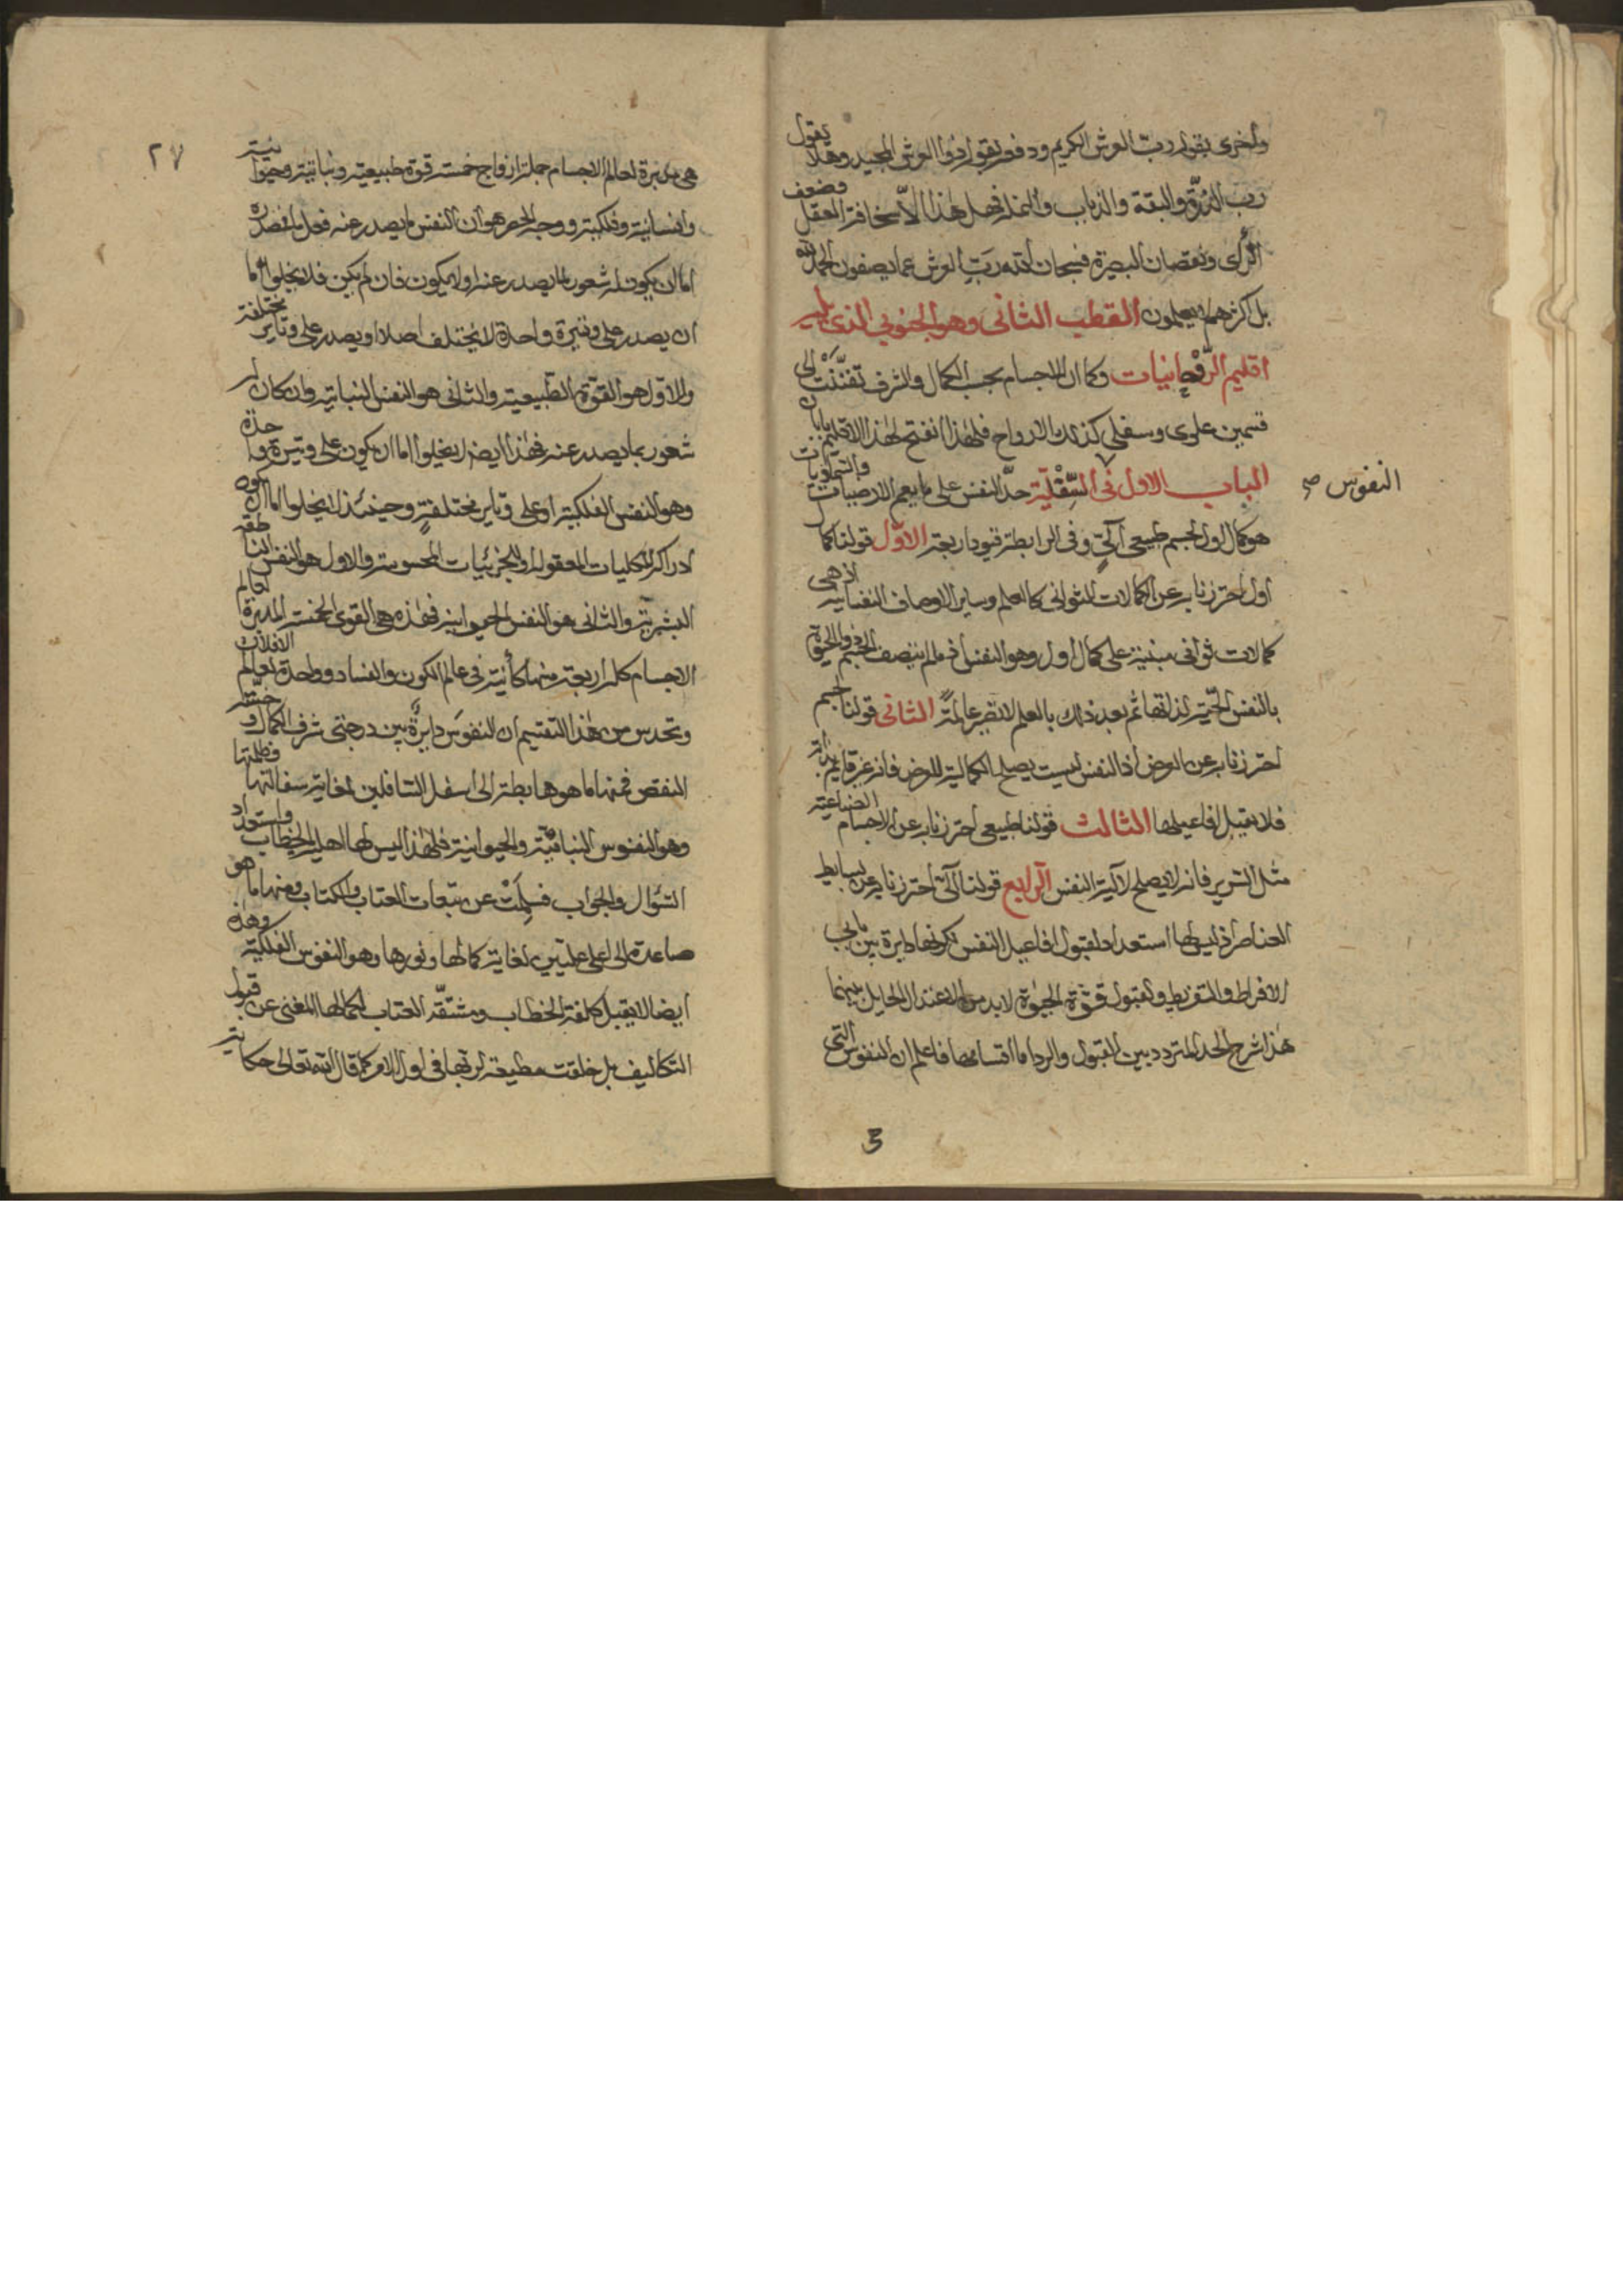 واخرى بقول رب العرش الكريم ودفعة بقول ذوا العرش المجيد وهلا يقول
رب الذرة والبقة والذباب والنملة فهل هذا الا سخافة العقل وضعف
الرأى ونقصان البصيرة فسبحان الله رب العرش عما يصفون الحمد لله
بل اكثرهم لا يعلمون القطب الثانى وهو الجنوبي الذى يليه
اقليم الروحانيات وكما ان الاجسام بحسب الكمال والشرف تفننت الى
قسمين علوى وسفلى كذلك الارواح فلهذا انفتح لهذا الاقليم بابان
الباب الاول فى السفلية حد النفس على ما يعم الارضيات والسماويات
النفوس صح
هو كمال اول لجسم طبيعى آلي وفى الرابطة قيود اربعة الاول قولنا كمال
اول احترزنا به عن الكمالات الثوانى كالعلم وساير الاوصاف النفسانية اذ هى
كمالات ثوانى مبنية على كمال اول وهو النفس اذ ما لم يتصف الجسم ذو الحيوة
بالنفس الحية لذاتها ثم بعد ذلك بالعلم لا تصير عالمة الثانى قولنا لجسم
احترزنا به عن العرض اذ النفس ليست يصلح لكمالية العرض فانه غير قايم بذاته
فلا يقبل افاعيلها الثالث قولنا طبيعى احترزنا به عن الاجسام الصناعية
مثل السرير فانه لا يصلح لآلية النفس الرابع قولنا آلى احترزنا به عن بسايط
العناصر اذ ليس لها استعداد لقبول افاعيل النفس لكونها دايرة بين جانبى
الافراط والتفريط ولقبول قوة الحيوة لا بد من الاعتدال الحايل بينهما
هذا شرح الحد المتردد بين القبول والرد اما اقسامها فاعلم ان النفوس التى
٢٧
هى مدبرة لعالم الاجسام جملة ازواج خمسة قوة طبيعية ونباتية وحيوانية
وانسانية وفلكية ووجه الحصر هو ان النفس ما يصدر عنه فعل ما فمصدره
اما ان يكون له شعور لما يصدر عنه او لا يكون فان لم يكن فلا يخلوا اما
ان يصدر على وتيرة واحدة لا يختلف اصلا او يصدر على وتاير مختلفة
والاول هو القوة الطبيعية والثانى هو النفس النباتية وان كان له
شعور بما يصدر عنه فهذا ايضا لا يخلوا اما ان يكون على وتيرة واحدة
وهو النفس الفلكية او على وتاير مختلفة وحينئذ لا يخلوا اما ان يكون
ادراكه للكليات المعقولة او للجزئيات المحسوسة والاول هو النفس الناطقة
البشرية والثانى هو النفس الحيوانية فهذه هى القوى الخمسة المدبرة لعالم
الاجسام كلها اربعة منها كائنة فى عالم الكون والفساد وواحدة لعالم الافلاك
وتحدس من هذا التقسيم ان النفوس دايرة بين درجتى شرف الكمال وخسة
النقص فمنها ما هو هابطة الى اسفل السافلين لغاية سفالتها وظلمتها
وهو النفوس النباتية والحيوانية فلهذا ليس لها اهلية الخطاب واستعداد
السؤال والجواب فسلمت عن تبعات العتاب والكتاب ومنها ما هو
صاعدة الى اعلى عليين لغاية كمالها ونورها وهو النفوس الفلكية وهذه
ايضا لا يقبل كلفة الخطاب ومشقة العتاب لكمالها المغنى عن قبول
التكاليف بل خلقت مطيعة لربها فى اول الامر كما قال الله تعالى حكاية